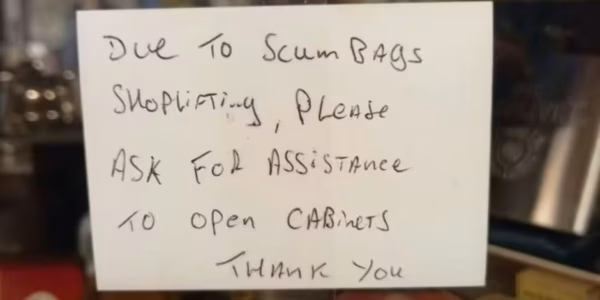 Due To ScumBAgs
SHopLiFTing, PLeAse
ASK FoR ASSiSTAnce
To open CABineTS
THANK You